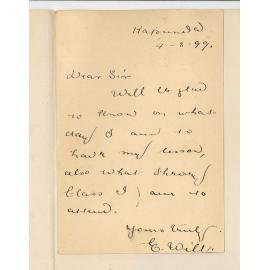 Kapunda
4-8-99.
Dear Sir
Will be glad
to know on what
day I am to
have my lesson,
also what Theory
Class I am to
attend.
Yours truly
E. Will.